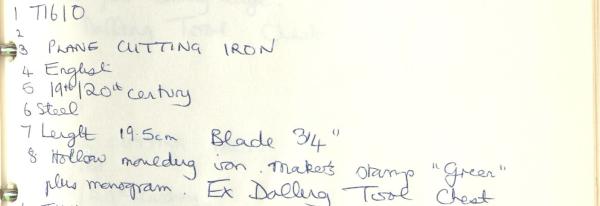 1 T1610
2
3 PLANE CUTTING IRON
4 English
5 19th/20th century
6 Steel
7 Length 19.5cm Blade 3/4"
8 Hollow moulding iron. Makers stamp "Green"
plus monogram. Ex Dalling Tool Chest